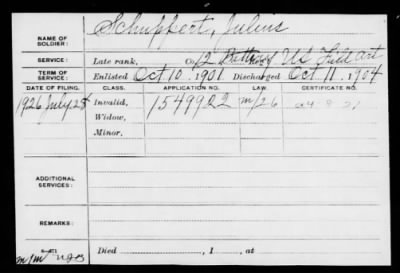 NAME OF SOLDIER: Schuppert, Julius
SERVICE: Late rank, Co. 12 Battery US Field Art
TERM OF SERVICE: Enlisted Oct 10, 1901 Discharged Oct 11, 1904
DATE OF FILING. CLASS. APPLICATION NO. LAW. CERTIFICATE NO.
1926 July 28 Invalid, 1549922 m/26
Widow,
Minor,
ADDITIONAL SERVICES:
REMARKS:
Died , 1 , at